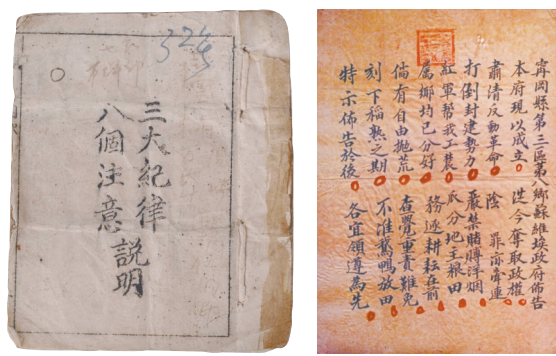 三大紀律
八個注意
說明
寧岡縣第三區第八鄉蘇維埃政府佈告
本府現以成立 從今奪取政權
肅清反動革命 陰 罪亦牽連
打倒封建勢力 嚴禁賭膊洋烟
紅軍帮我工農 瓜分地主粮田
属鄉均已分好 務速耕耘在前
倘有自由拋荒 查覺重責難免
刻下稻熟之期 不准鵝鴨放田
特示佈告於後 各宜領遵為先